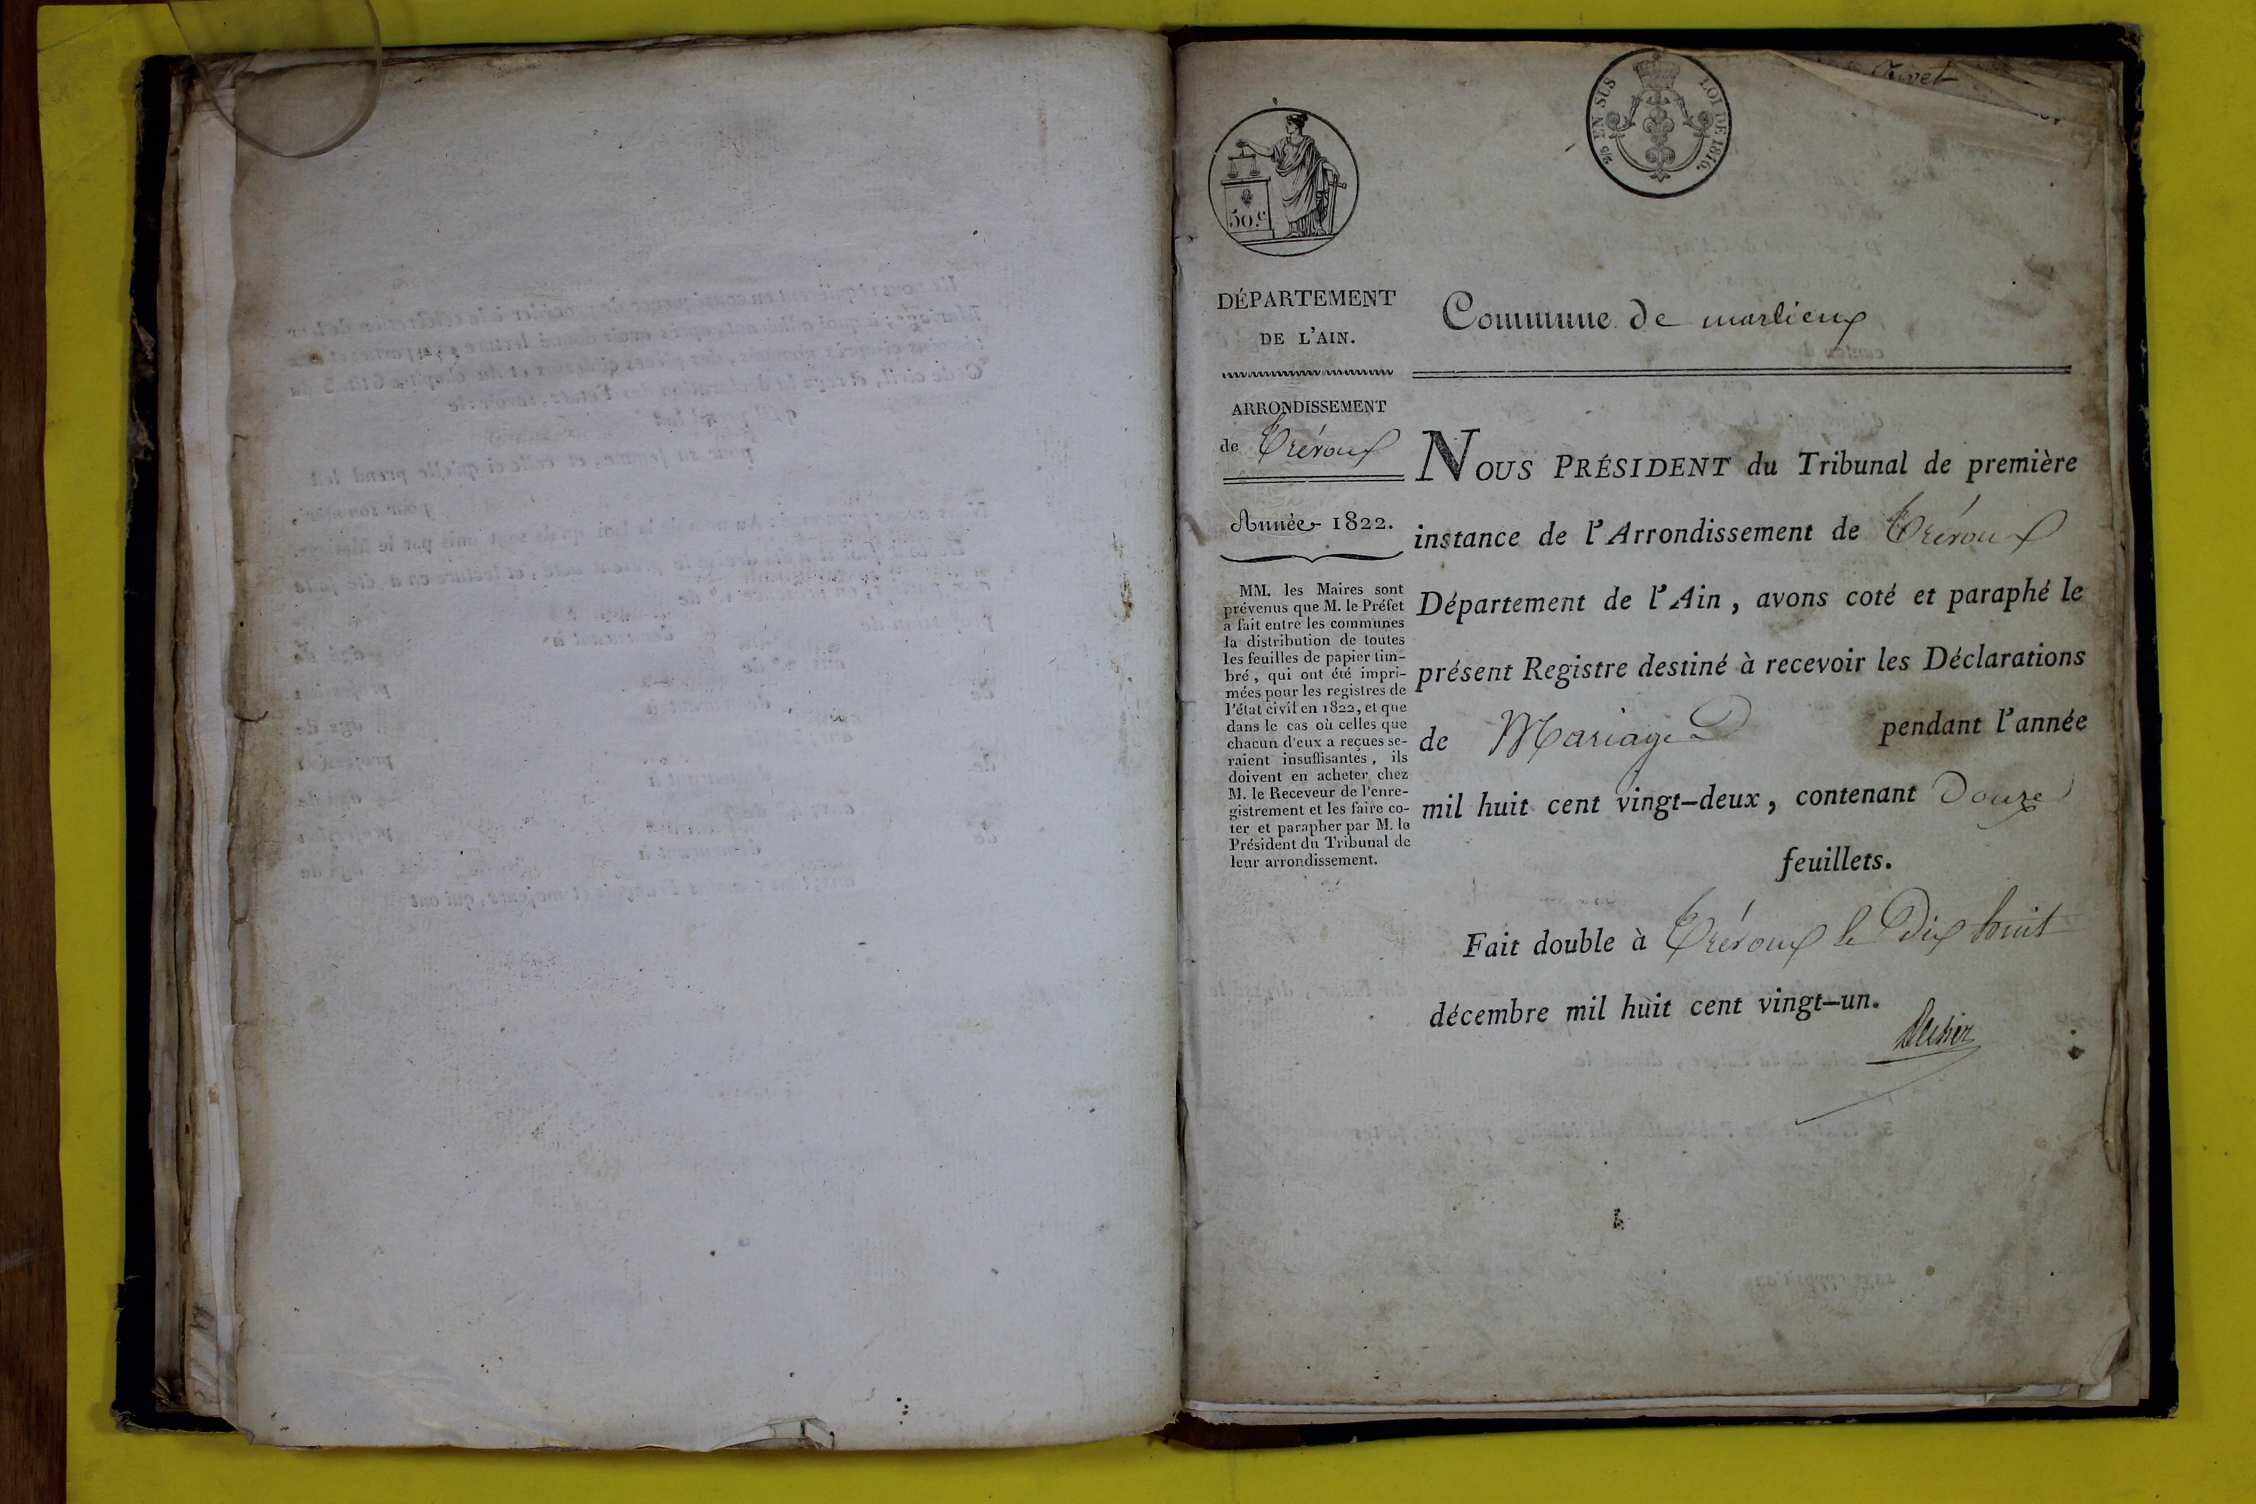 2/5 EN SUS LOI DE 1816.
50.c
DÉPARTEMENT
DE L'AIN.
Commune de marlieux
ARRONDISSEMENT
de Trévoux
Année 1822.
MM. les Maires sont
prévenus que M. le Préfet
a fait entre les communes
la distribution de toutes
les feuilles de papier tim-
bré, qui ont été impri-
mées pour les registres de
l'état civil en 1822, et que
dans le cas où celles que
chacun d'eux a reçues se-
raient insuffisantes, ils
doivent en acheter chez
M. le Receveur de l'enre-
gistrement et les faire co-
ter et parapher par M. le
Président du Tribunal de
leur arrondissement.
NOUS PRÉSIDENT du Tribunal de première
instance de l'Arrondissement de Trévoux
Département de l'Ain, avons coté et paraphé le
présent Registre destiné à recevoir les Déclarations
de Mariage pendant l'année
mil huit cent vingt-deux, contenant Douze
feuillets.
Fait double à Trévoux le Dix huit
décembre mil huit cent vingt-un.